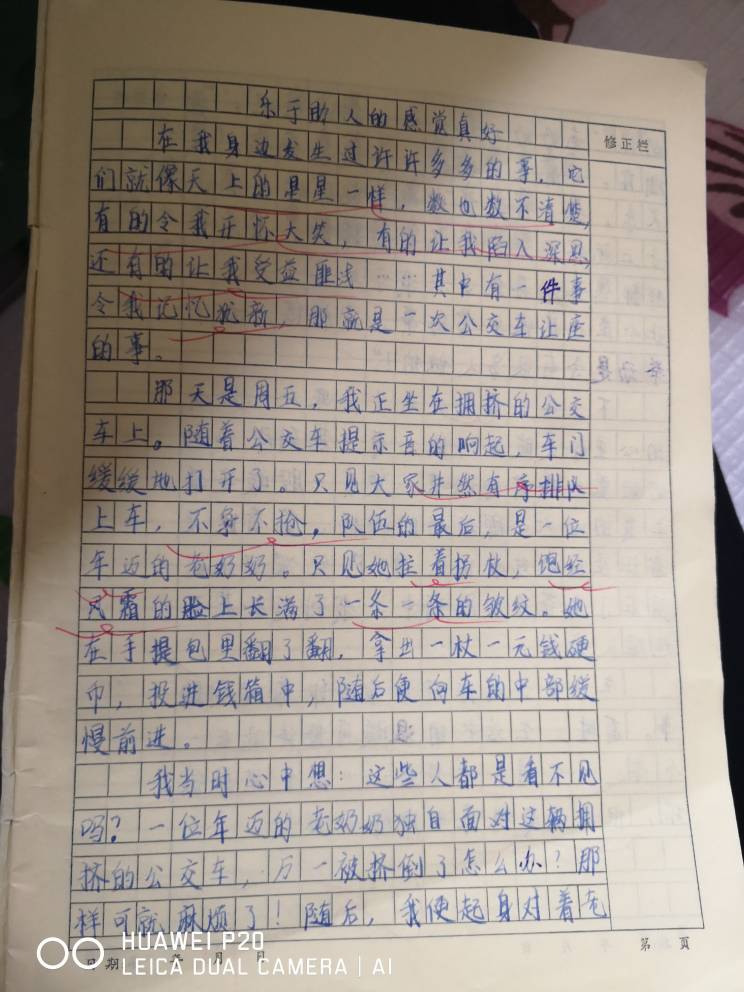 乐于助人的感觉真好
修正栏
在我身边发生过许许多多的事，它
们就像天上的星星一样，数也数不清楚，
有的令我开怀大笑，有的让我陷入深思，
还有的让我受益匪浅……其中有一件事
令我记忆犹新，那就是一次公交车让座
的事。
那天是周五，我正坐在拥挤的公交
车上。随着公交车提示音的响起，车门
缓缓地打开了。只见大家井然有序排队
上车，不争不抢，队伍的最后，是一位
年迈的老奶奶。只见她拄着拐杖，饱经
风霜的脸上长满了一条一条的皱纹。她
在手提包里翻了翻，拿出一杖一元钱硬
币，投进钱箱中，随后便向车的中部缓
慢前进。
我当时心中想：这些人都是看不见
吗？一位年迈的老奶奶独自面对这辆拥
挤的公交车，万一被挤倒了怎么办？那
样可就麻烦了！随后，我便起身对着老
第 页
日期 年 月 日
HUAWEI P20
LEICA DUAL CAMERA | AI